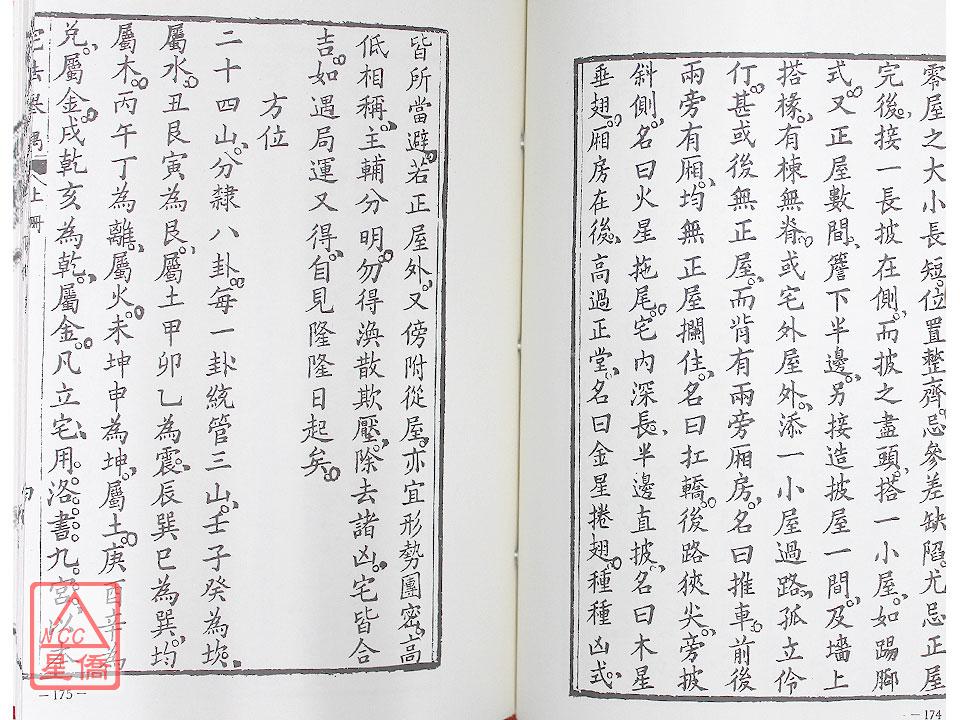 零屋之大小長短。位置整齊。忌參差缺陷。尤忌正屋
完後、接一長披在側。而披之盡頭、搭一小屋。如踢脚
式。又正屋數間、簷下半邊、另接造披屋一間、及墻上
搭椽。有棟無脊。或宅外屋外、添一小屋過路、孤立伶
仃。甚或後無正屋、而背有兩旁廂房、名曰推車。前後
兩旁有廂、均無正屋攔住、名曰扛轎。後路狹尖、旁披
斜側、名曰火星拖尾。宅內深長、半邊直披、名曰木星
垂翅。廂房在後、高過正堂、名曰金星捲翅。種種凶式、
—174
皆所當避。若正屋外、又傍附從屋、亦宜形勢團密、高
低相稱、主輔分明。勿得渙散欺壓、除去諸凶。宅皆合
吉。如遇局運又得、自見隆隆日起矣。
方位
二十四山、分隸八卦。每一卦統管三山、壬子癸為坎、
屬水。丑艮寅為艮、屬土甲卯乙為震、辰巽巳為巽、均
屬木。丙午丁為離、屬火。未坤申為坤、屬土。庚酉辛為
兌、屬金。戌乾亥為乾、屬金。凡立宅、用洛書九宮、以
宅法舉隅 上冊
—175—
NCC
星僑